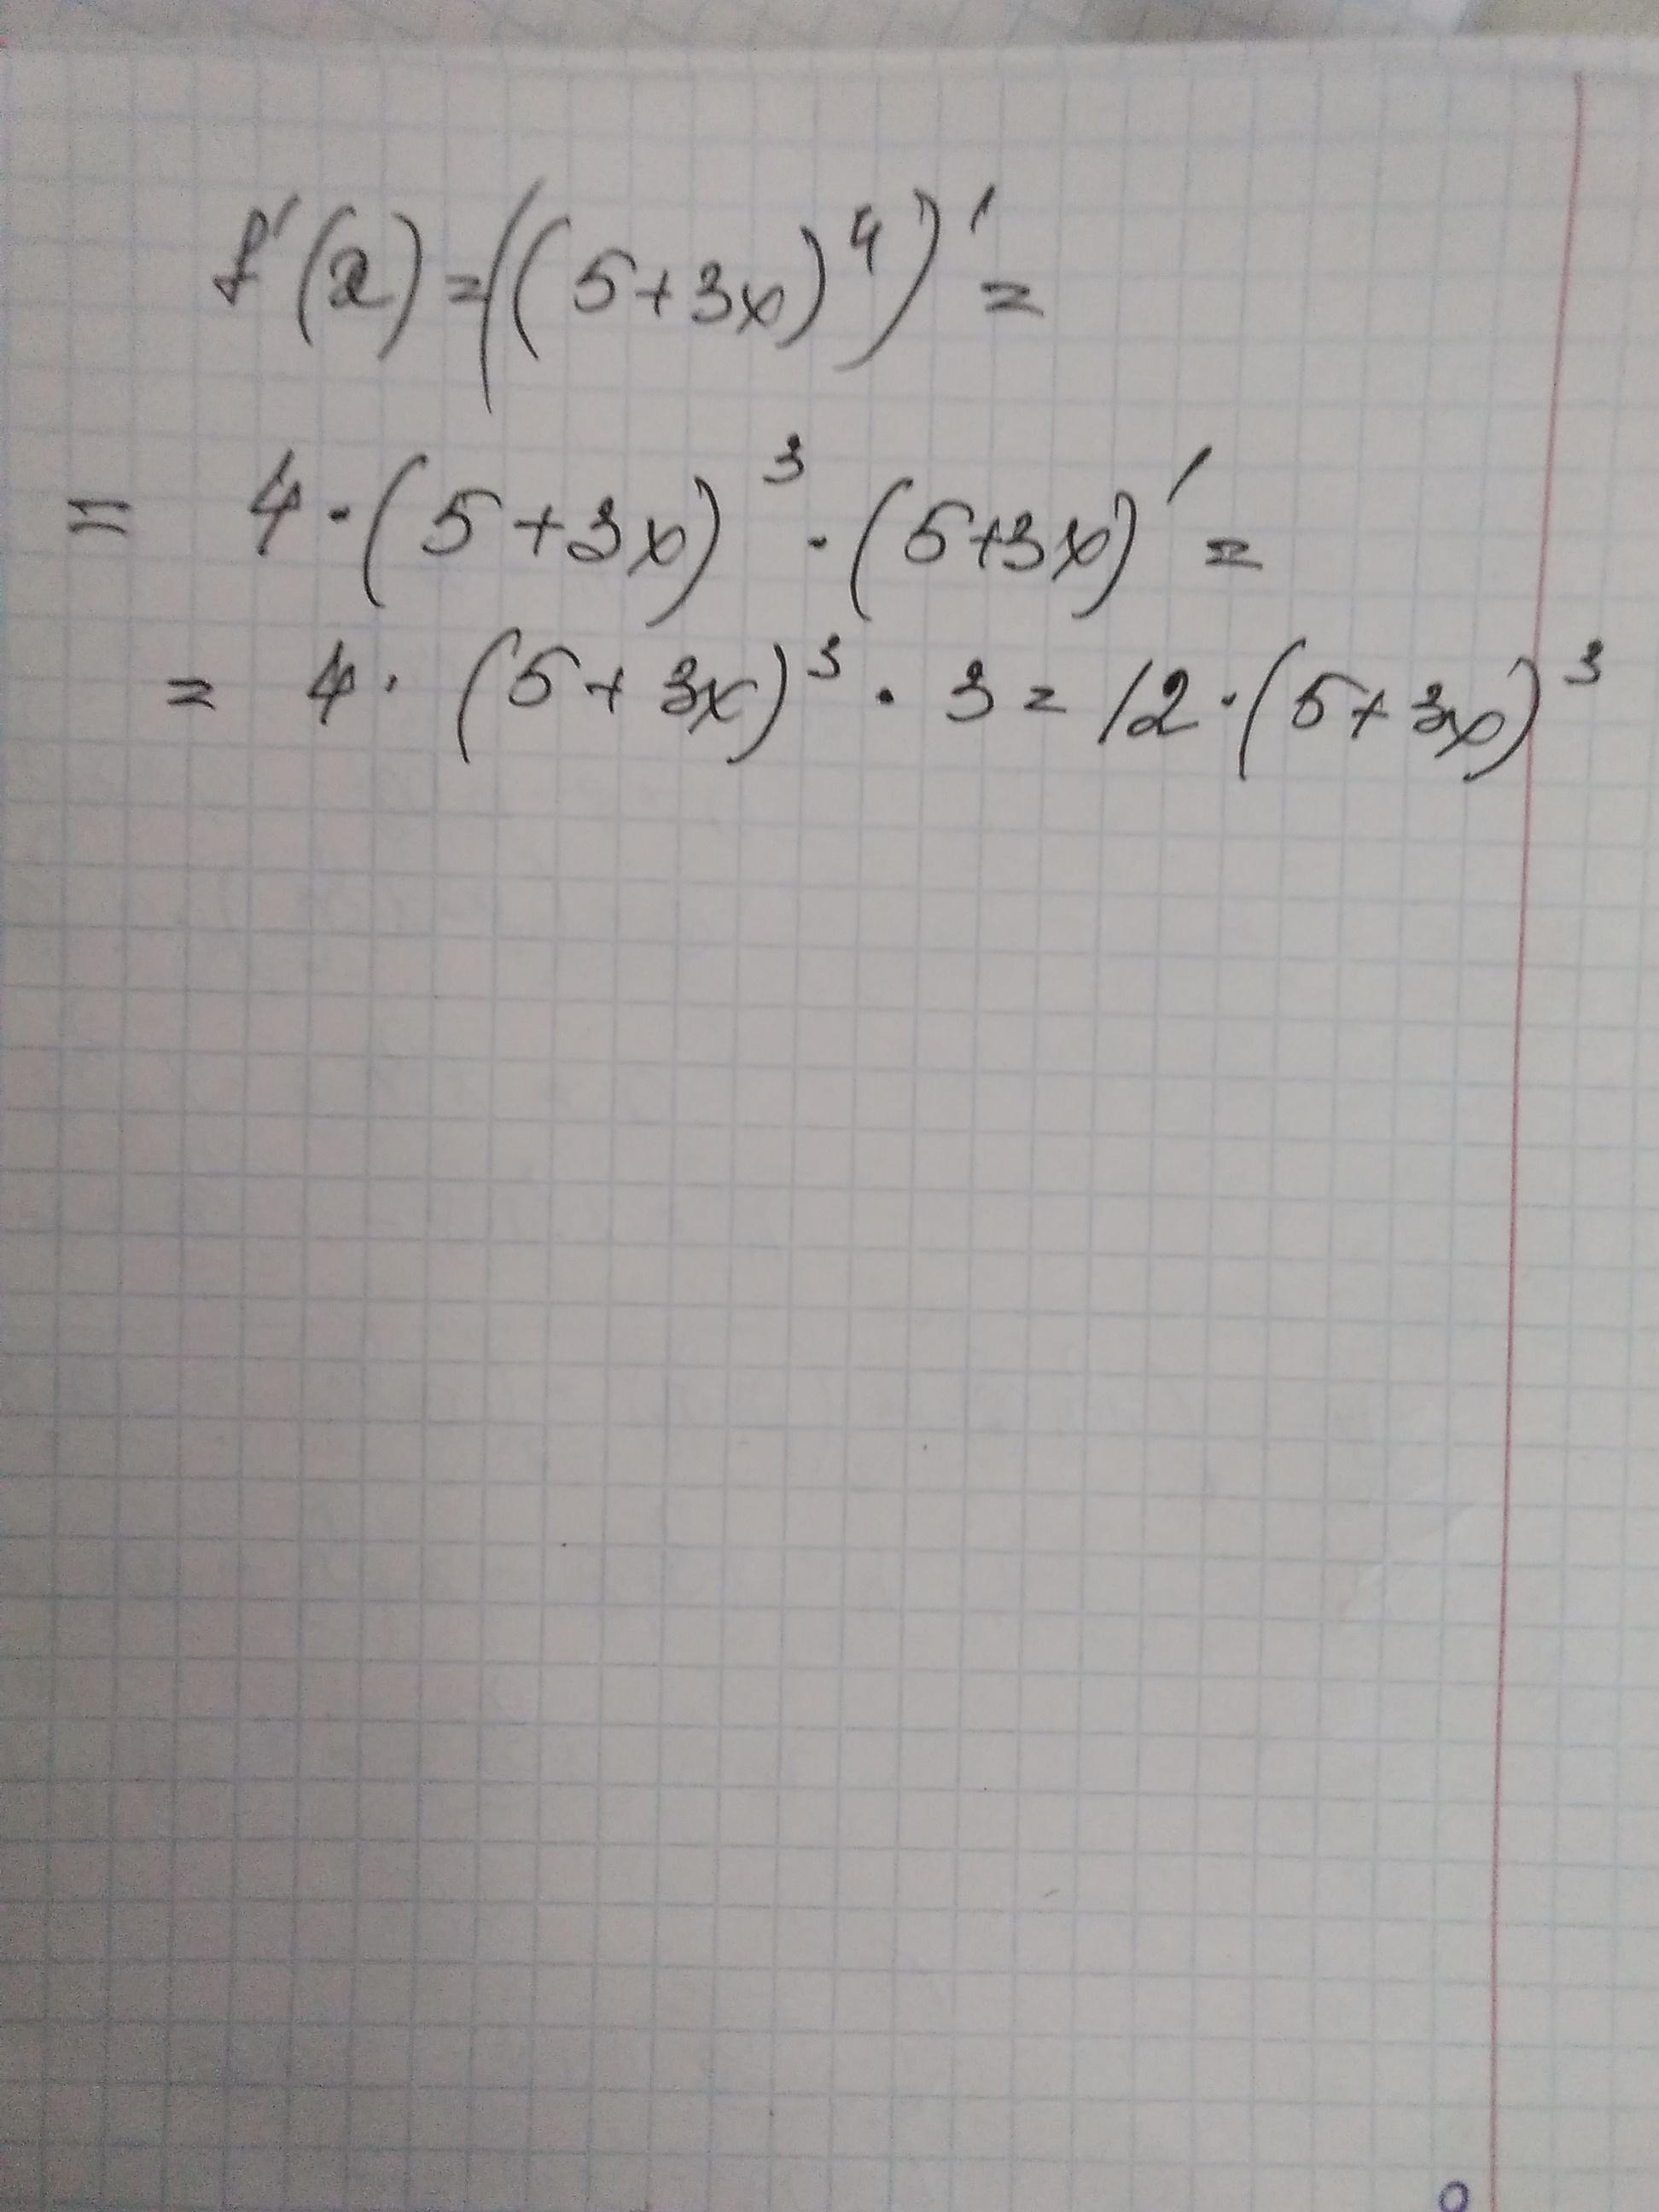 f'(x) = ((5+3x)^4)' =
= 4·(5+3x)^3·(5+3x)' =
= 4·(5+3x)^3·3 = 12·(5+3x)^3